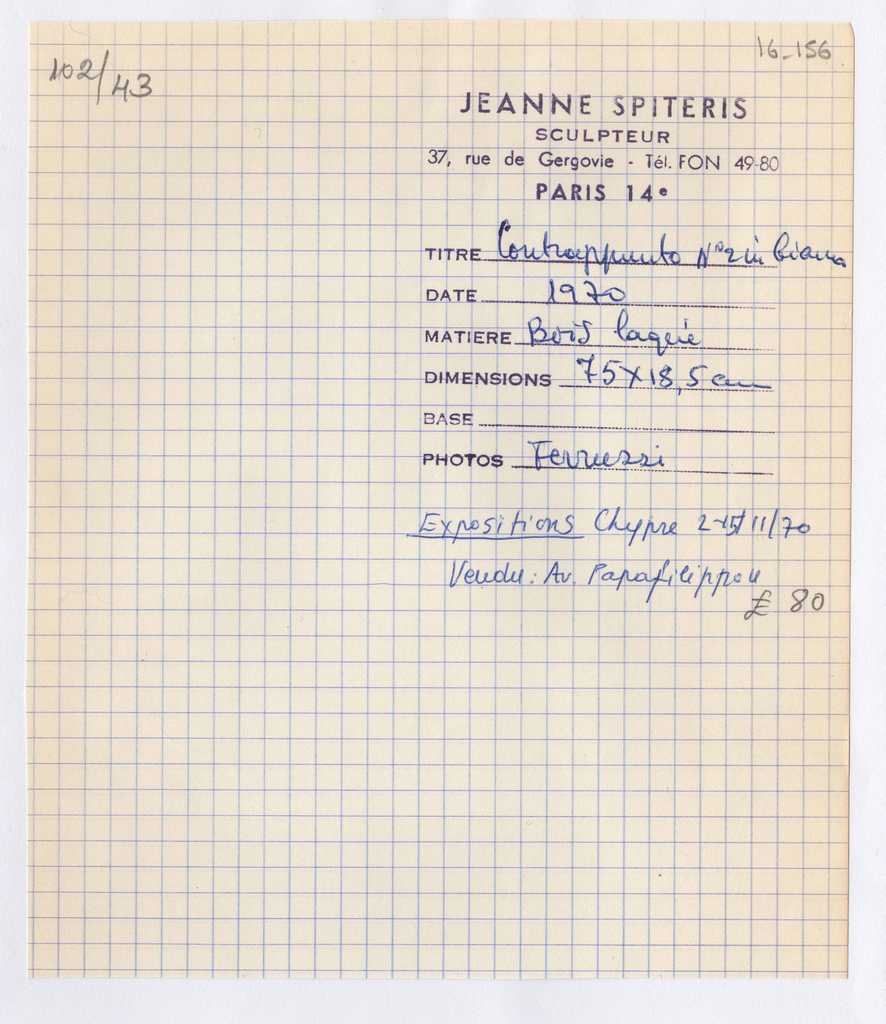 102/43
16-156
JEANNE SPITERIS
SCULPTEUR
37, rue de Gergovie - Tél. FON 49-80
PARIS 14e
TITRE Contrappunto N°2 in bianco
DATE 1970
MATIERE Bois laqué
DIMENSIONS 75x18,5 cm
BASE
PHOTOS Ferruzzi
Expositions Chypre 2-15/11/70
Vendu: Av. Papafilippou
£ 80